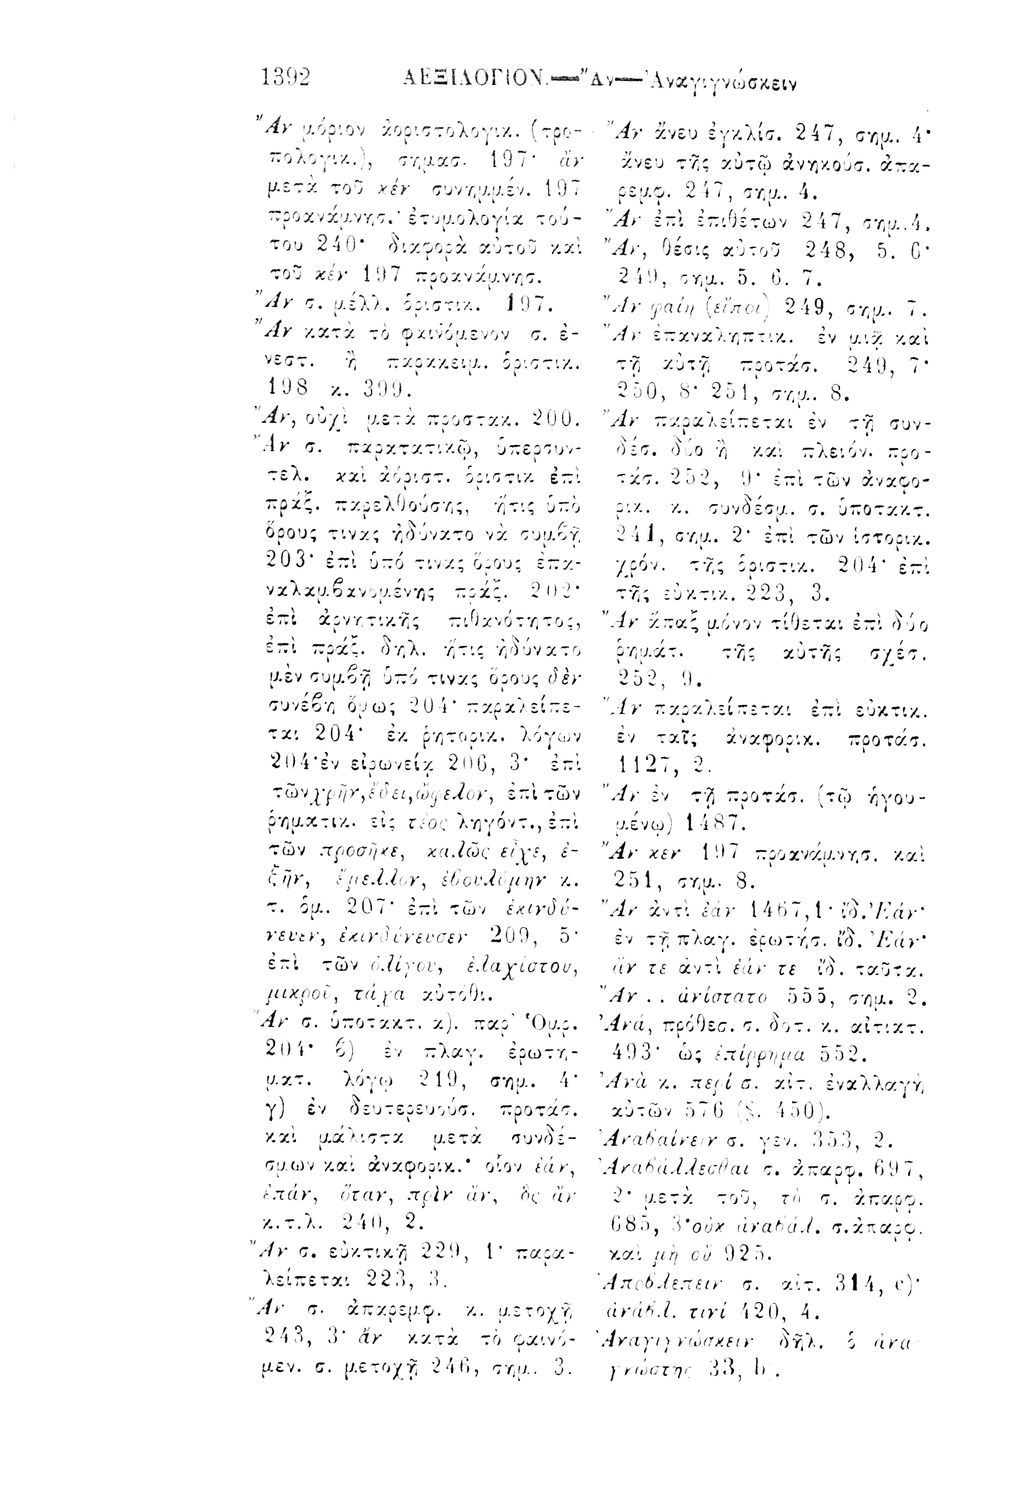 1392 ΛΕΞΙΛΟΓΙΟΝ.—Ἂν—Ἀναγιγνώσκειν
Ἂν μόριον ἀοριστολογικ. (τρο-
πολογικ.), σημασ. 197· ἂν
μετὰ τοῦ κέν συνημμέν. 197
προανάμνησ.· ἐτυμολογία τού-
του 240· διαφορὰ αὐτοῦ καὶ
τοῦ κέν 197 προανάμνησ.
Ἂν σ. μέλλ. ὁριστικ. 197.
Ἂν κατὰ τὸ φαινόμενον σ. ἐ-
νεστ. ἢ παρακειμ. ὁριστικ.
198 κ. 399.
Ἂν, οὐχὶ μετὰ προστακ. 200.
Ἂν σ. παρατατικῷ, ὑπερσυν-
τελ. καὶ ἀόριστ. ὁριστικ ἐπὶ
πράξ. παρελθούσης, ἥτις ὑπὸ
ὅρους τινας ἠδύνατο νὰ συμβῇ
203· ἐπὶ ὑπό τινας ὅρους ἐπα-
ναλαμβανομένης πράξ. 202·
ἐπὶ ἀρνητικῆς πιθανότητος,
ἐπὶ πράξ. δηλ. ἥτις ἠδύνατο
μὲν συμβῇ ὑπό τινας ὅρους δὲν
συνέβη ὅμως 204· παραλείπε-
ται 204· ἐκ ῥητορικ. λόγων
204·ἐν εἰρωνείᾳ 206, 3· ἐπὶ
τῶν χρῆν, ἔδει, ὤφελον, ἐπὶ τῶν
ῥηματικ. εἰς τέος ληγόντ., ἐπὶ
τῶν προσῆκε, καλῶς εἶχε, ἐ-
ξῆν, ἔμελλον, ἐβουλόμην κ.
τ. ὁμ. 207· ἐπὶ τῶν ἐκινδύ-
νευεν, ἐκινδύνευσεν 209, 5·
ἐπὶ τῶν ὀλίγου, ἐλαχίστου,
μικροῦ, τάχα αὐτόθι.
Ἂν σ. ὑποτακτ. α). παρ' Ὁμρ.
204· β) ἐν πλαγ. ἐρωτη-
ματ. λόγῳ 219, σημ. 4·
γ) ἐν δευτερευούσ. προτάσ.
καὶ μάλιστα μετὰ συνδέ-
σμων καὶ ἀναφορικ.· οἷον ἐάν,
ἐπάν, ὅταν, πρὶν ἄν, ὃς ἂν
κ.τ.λ. 240, 2.
Ἂν σ. εὐκτικῇ 229, 1· παρα-
λείπεται 223, 3.
Ἂν σ. ἀπαρεμφ. κ. μετοχῇ
243, 3· ἂν κατὰ τὸ φαινό-
μεν. σ. μετοχῇ 246, σημ. 3.
Ἂν ἄνευ ἐγκλίσ. 247, σημ. 4·
ἄνευ τῆς αὐτῷ ἀνηκούσ. ἀπα-
ρεμφ. 247, σημ. 4.
Ἂν ἐπὶ ἐπιθέτων 247, σημ. 4.
Ἂν, θέσις αὐτοῦ 248, 5. 6·
249, σημ. 5. 6. 7.
Ἂν φαίη (εἴποι) 249, σημ. 7.
Ἂν ἐπαναληπτικ. ἐν μιᾷ καὶ
τῇ αὐτῇ προτάσ. 249, 7·
250, 8· 251, σημ. 8.
Ἂν παραλείπεται ἐν τῇ συν-
δέσ. δύο ἢ καὶ πλειόν. προ-
τάσ. 252, 9· ἐπὶ τῶν ἀναφο-
ρικ. κ. συνδέσμ. σ. ὑποτακτ.
241, σημ. 2· ἐπὶ τῶν ἱστορικ.
χρόν. τῆς ὁριστικ. 204· ἐπὶ
τῆς εὐκτικ. 223, 3.
Ἂν ἅπαξ μόνον τίθεται ἐπὶ δύο
ῥημάτ. τῆς αὐτῆς σχέσ.
252, 9.
Ἂν παραλείπεται ἐπὶ εὐκτικ.
ἐν ταῖς ἀναφορικ. προτάσ.
1127, 2.
Ἂν ἐν τῇ προτάσ. (τῷ ἡγου-
μένῳ) 1487.
Ἂν κεν 197 προανάμνησ. καὶ
251, σημ. 8.
Ἂν ἀντὶ ἐάν 1467,1· ἴδ. Ἐάν·
ἐν τῇ πλαγ. ἐρωτήσ. ἴδ. Ἐάν·
ἄν τε ἀντὶ ἐάν τε ἴδ. ταῦτα.
Ἂν .. ἀνίστατο 555, σημ. 2.
Ἀνά, πρόθεσ. σ. δοτ. κ. αἰτιατ.
493· ὡς ἐπίρρημα 552.
Ἀνὰ κ. περί σ. αἰτ. ἐναλλαγὴ
αὐτῶν 576 (§. 450).
Ἀναβαίνειν σ. γεν. 353, 2.
Ἀναβάλλεσθαι σ. ἀπαρφ. 697,
2· μετὰ τοῦ, τὸ σ. ἀπαρφ.
685, 3·οὐκ ἀναβάλ. σ.ἀπαρφ.
καὶ μὴ οὐ 925.
Ἀποβλέπειν σ. αἰτ. 314, c)·
ἀνάβλ. τινί 420, 4.
Ἀναγιγνώσκειν δῆλ. ὁ ἀνα
γνώστης 33, b.